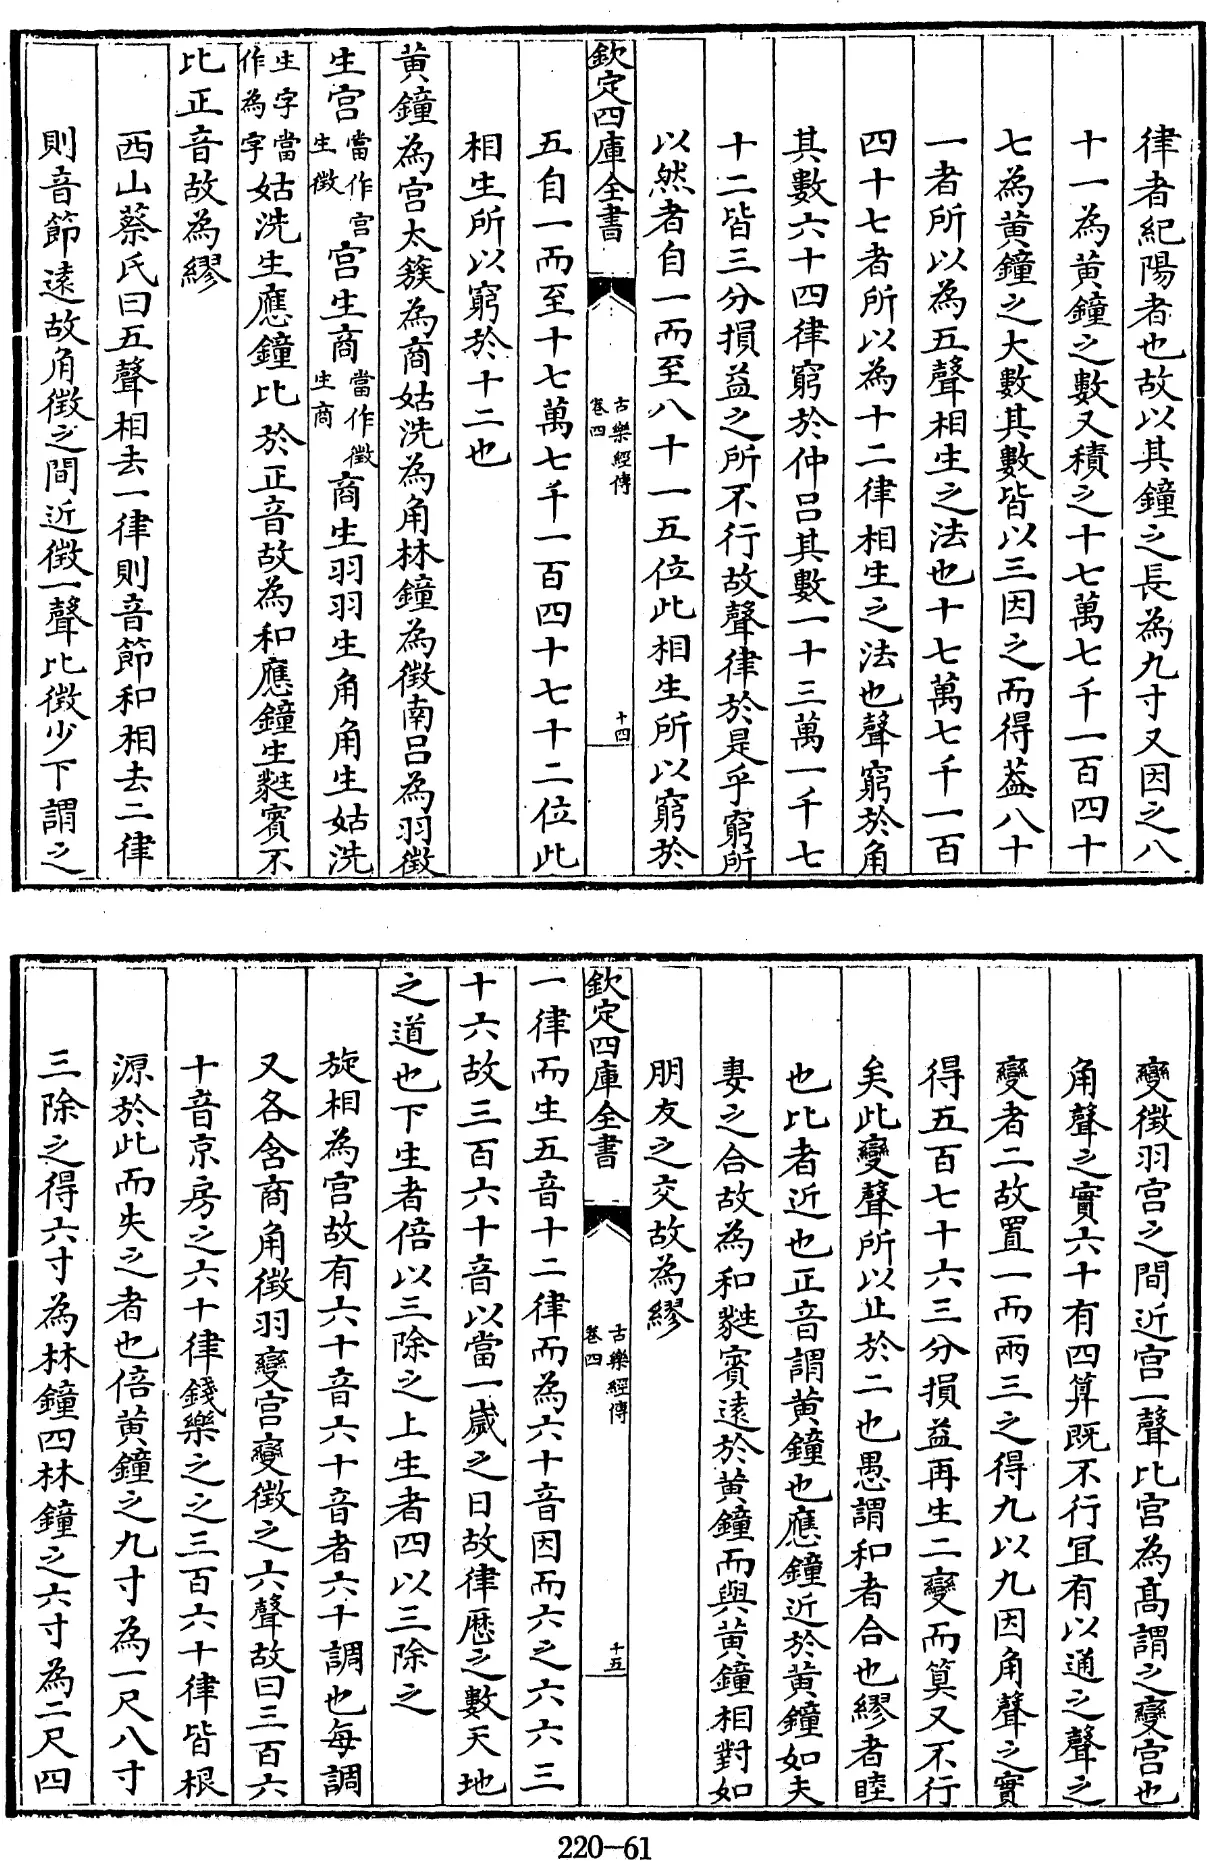 律者紀陽者也故以其鐘之長為九寸又因之八
十一為黃鐘之數又積之十七萬七千一百四十
七為黃鐘之大數其數皆以三因之而得葢八十
一者所以為五聲相生之法也十七萬七千一百
四十七者所以為十二律相生之法也聲窮於角
其數六十四律窮於仲呂其數一十三萬一千七
十二皆三分損益之所不行故聲律於是乎窮所
以然者自一而至八十一五位此相生所以窮於
欽定四庫全書
古樂經傳
卷四
十四
五自一而至十七萬七千一百四十七十二位此
相生所以窮於十二也
黃鐘為宮太簇為商姑洗為角林鐘為徵南呂為羽徵
生宮當作宮生徵宮生商當作徵生商商生羽羽生角角生姑洗
生字當作為字姑洗生應鐘比於正音故為和應鐘生蕤賓不
比正音故為繆
西山蔡氏曰五聲相去一律則音節和相去二律
則音節遠故角徵之間近徵一聲比徵少下謂之
變徵羽宮之間近宮一聲比宮為高謂之變宮也
角聲之實六十有四算既不行宜有以通之聲之
變者二故置一而兩三之得九以九因角聲之實
得五百七十六三分損益再生二變而算又不行
矣此變聲所以止於二也愚謂和者合也繆者睦
也比者近也正音謂黃鐘也應鐘近於黃鐘如夫
妻之合故為和蕤賓遠於黃鐘而與黃鐘相對如
朋友之交故為繆
欽定四庫全書
古樂經傳
卷四
十五
一律而生五音十二律而為六十音因而六之六六三
十六故三百六十音以當一歲之日故律歷之數天地
之道也下生者倍以三除之上生者四以三除之
旋相為宮故有六十音六十音者六十調也每調
又各含商角徵羽變宮變徵之六聲故曰三百六
十音京房之六十律錢樂之之三百六十律皆根
源於此而失之者也倍黃鐘之九寸為一尺八寸
三除之得六寸為林鐘四林鐘之六寸為二尺四
220-61